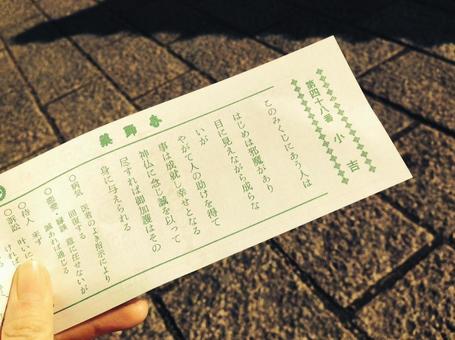 第四十八番 小吉
薬師香
このみくじにあう人は
はじめは邪魔があり
目に見えながら成らな
いが
やがて人の助けを得て
事は成就し幸せとなる
神仏に念じ誠を以って
尽すれば御加護はその
身に与えられる
○病気 医者のよき指示により
回復する
○恋愛・縁談 意に任せないが
誠あれば通じる
○待人 来ず
○訴訟 叶いに
ければ